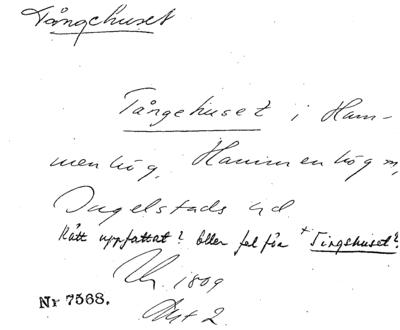 Tångehuset
Tångehuset i Ham-
menhög, Hammenhög sn,
Ingelstads hd.
Rätt uppfattat? Eller fel för + Tingshuset?
1809
Nr 7568.